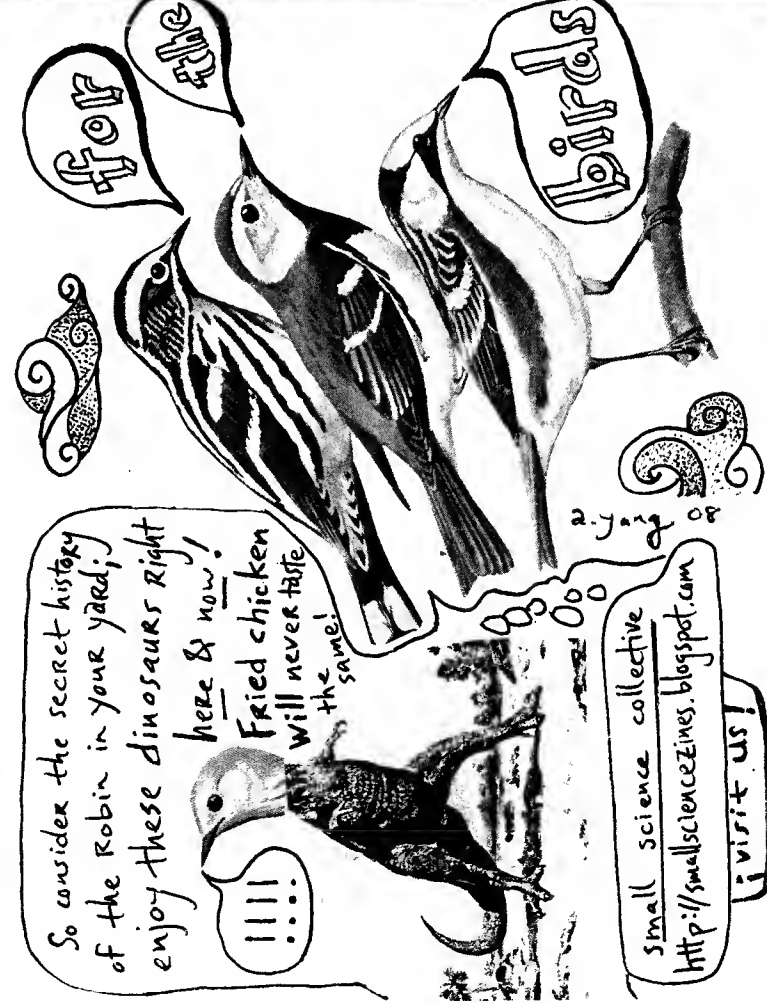 for
the
birds
So consider the secret history
of the Robin in your yard;
enjoy these dinosaurs Right
here & now!
Fried chicken
will never taste
the
same!
!!!!
a. yang 08
small science collective
http://smallsciencezines.blogspot.com
¡visit us!